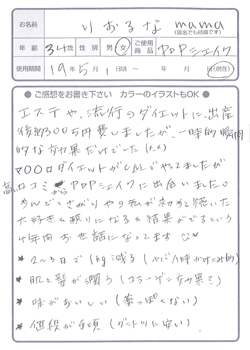 お名前 りおるな mama
(匿名でも結構です)
年齢 34歳 性別 男・女 ご使用商品 PDPシェイク
使用期間 19年5月1日 ～ 年 月 日 (現在)
● ご感想をお書き下さい カラーのイラストもOK ●
エステや、流行のダイエットに、出産
後約300万円費しましたが、一時的瞬間
的な効果だけでした
▽〇〇ダイエットがCMでやってましたが
高い口コミからPDPシェイクに出会いました。
めんどくさがりやの私が初めて続いた
大好き♪頼りになる&結果がでるという
年間お世話になってます
* 2~3日で1kg減る
* 肌と髪が潤う(コラーゲン効果?)
* 味がおいしい(薬っぽくない)
* 値段が手頃(ダントツに安い)